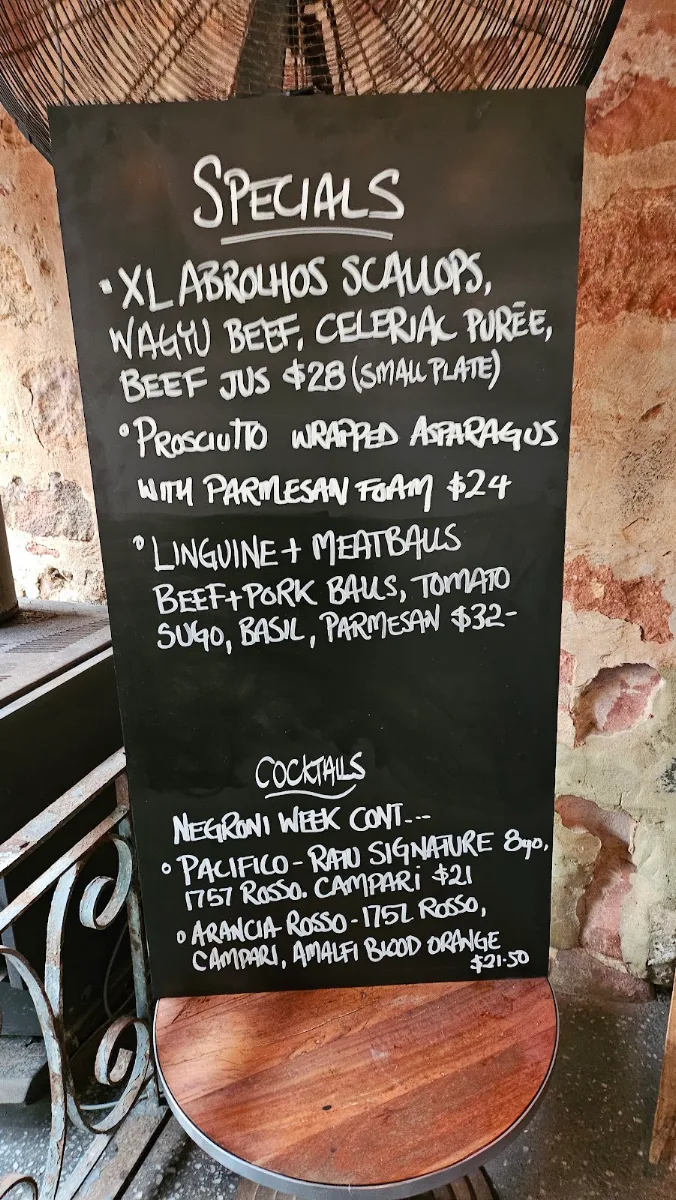 SPECIALS
• XL ABROLHOS SCALLOPS,
WAGYU BEEF, CELERIAC PURĒE,
BEEF JUS $28 (SMALL PLATE)
• PROSCIUTTO WRAPPED ASPARAGUS
WITH PARMESAN FOAM $24
• LINGUINE + MEATBALLS
BEEF + PORK BALLS, TOMATO
SUGO, BASIL, PARMESAN $32-
COCKTAILS
NEGRONI WEEK CONT...
• PACIFICO - RATU SIGNATURE 8yo,
1757 ROSSO. CAMPARI $21
• ARANCIA ROSSO - 1757 ROSSO,
CAMPARI, AMALFI BLOOD ORANGE
$21.50